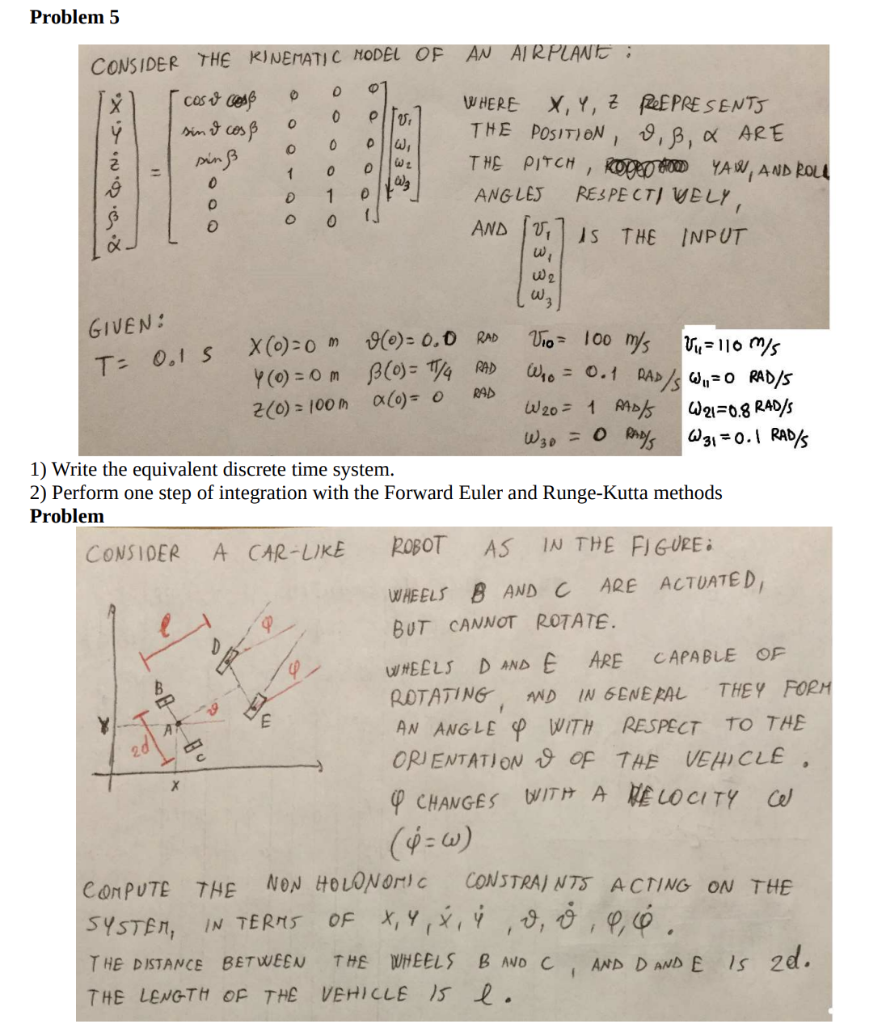 Problem 5
CONSIDER THE KINEMATIC MODEL OF AN AIRPLANE :
ẋ cosϑ cosβ 0 0 0
ẏ sinϑ cosβ 0 0 0 v₁
ż = sinβ 0 0 0 ω₁
ϑ̇ 0 1 0 0 ω₂
β̇ 0 0 1 0 ω₃
α̇ 0 0 0 1
WHERE X, Y, Z REPRESENTS
THE POSITION, ϑ, β, α ARE
THE PITCH, YAW, AND ROLL
ANGLES RESPECTIVELY,
AND [v₁ ω₁ ω₂ ω₃] IS THE INPUT
GIVEN:
T = 0,1 s X(0)=0 m ϑ(0)= 0.0 RAD V₁₀ = 100 m/s V₁₁ = 110 m/s
Y(0)=0 m β(0)= π/4 RAD ω₁₀ = 0.1 RAD/s ω₁₁ = 0 RAD/S
Z(0)=100 m α(0)= 0 RAD ω₂₀ = 1 RAD/s ω₂₁=0.8 RAD/s
ω₃₀ = 0 RAD/s ω₃₁ = 0.1 RAD/s
1) Write the equivalent discrete time system.
2) Perform one step of integration with the Forward Euler and Runge-Kutta methods
Problem
CONSIDER A CAR-LIKE ROBOT AS IN THE FIGURE:
WHEELS B AND C ARE ACTUATED,
BUT CANNOT ROTATE.
WHEELS D AND E ARE CAPABLE OF
ROTATING, AND IN GENERAL THEY FORM
AN ANGLE φ WITH RESPECT TO THE
ORIENTATION ϑ OF THE VEHICLE.
φ CHANGES WITH A VELOCITY ω
(φ̇=ω)
l φ
D φ
B ϑ E
Y A
2d C
X
COMPUTE THE NON HOLONOMIC CONSTRAINTS ACTING ON THE
SYSTEM, IN TERMS OF X, Y, ẋ, ẏ, ϑ, ϑ̇, φ, φ̇.
THE DISTANCE BETWEEN THE WHEELS B AND C, AND D AND E IS 2d.
THE LENGTH OF THE VEHICLE IS l.